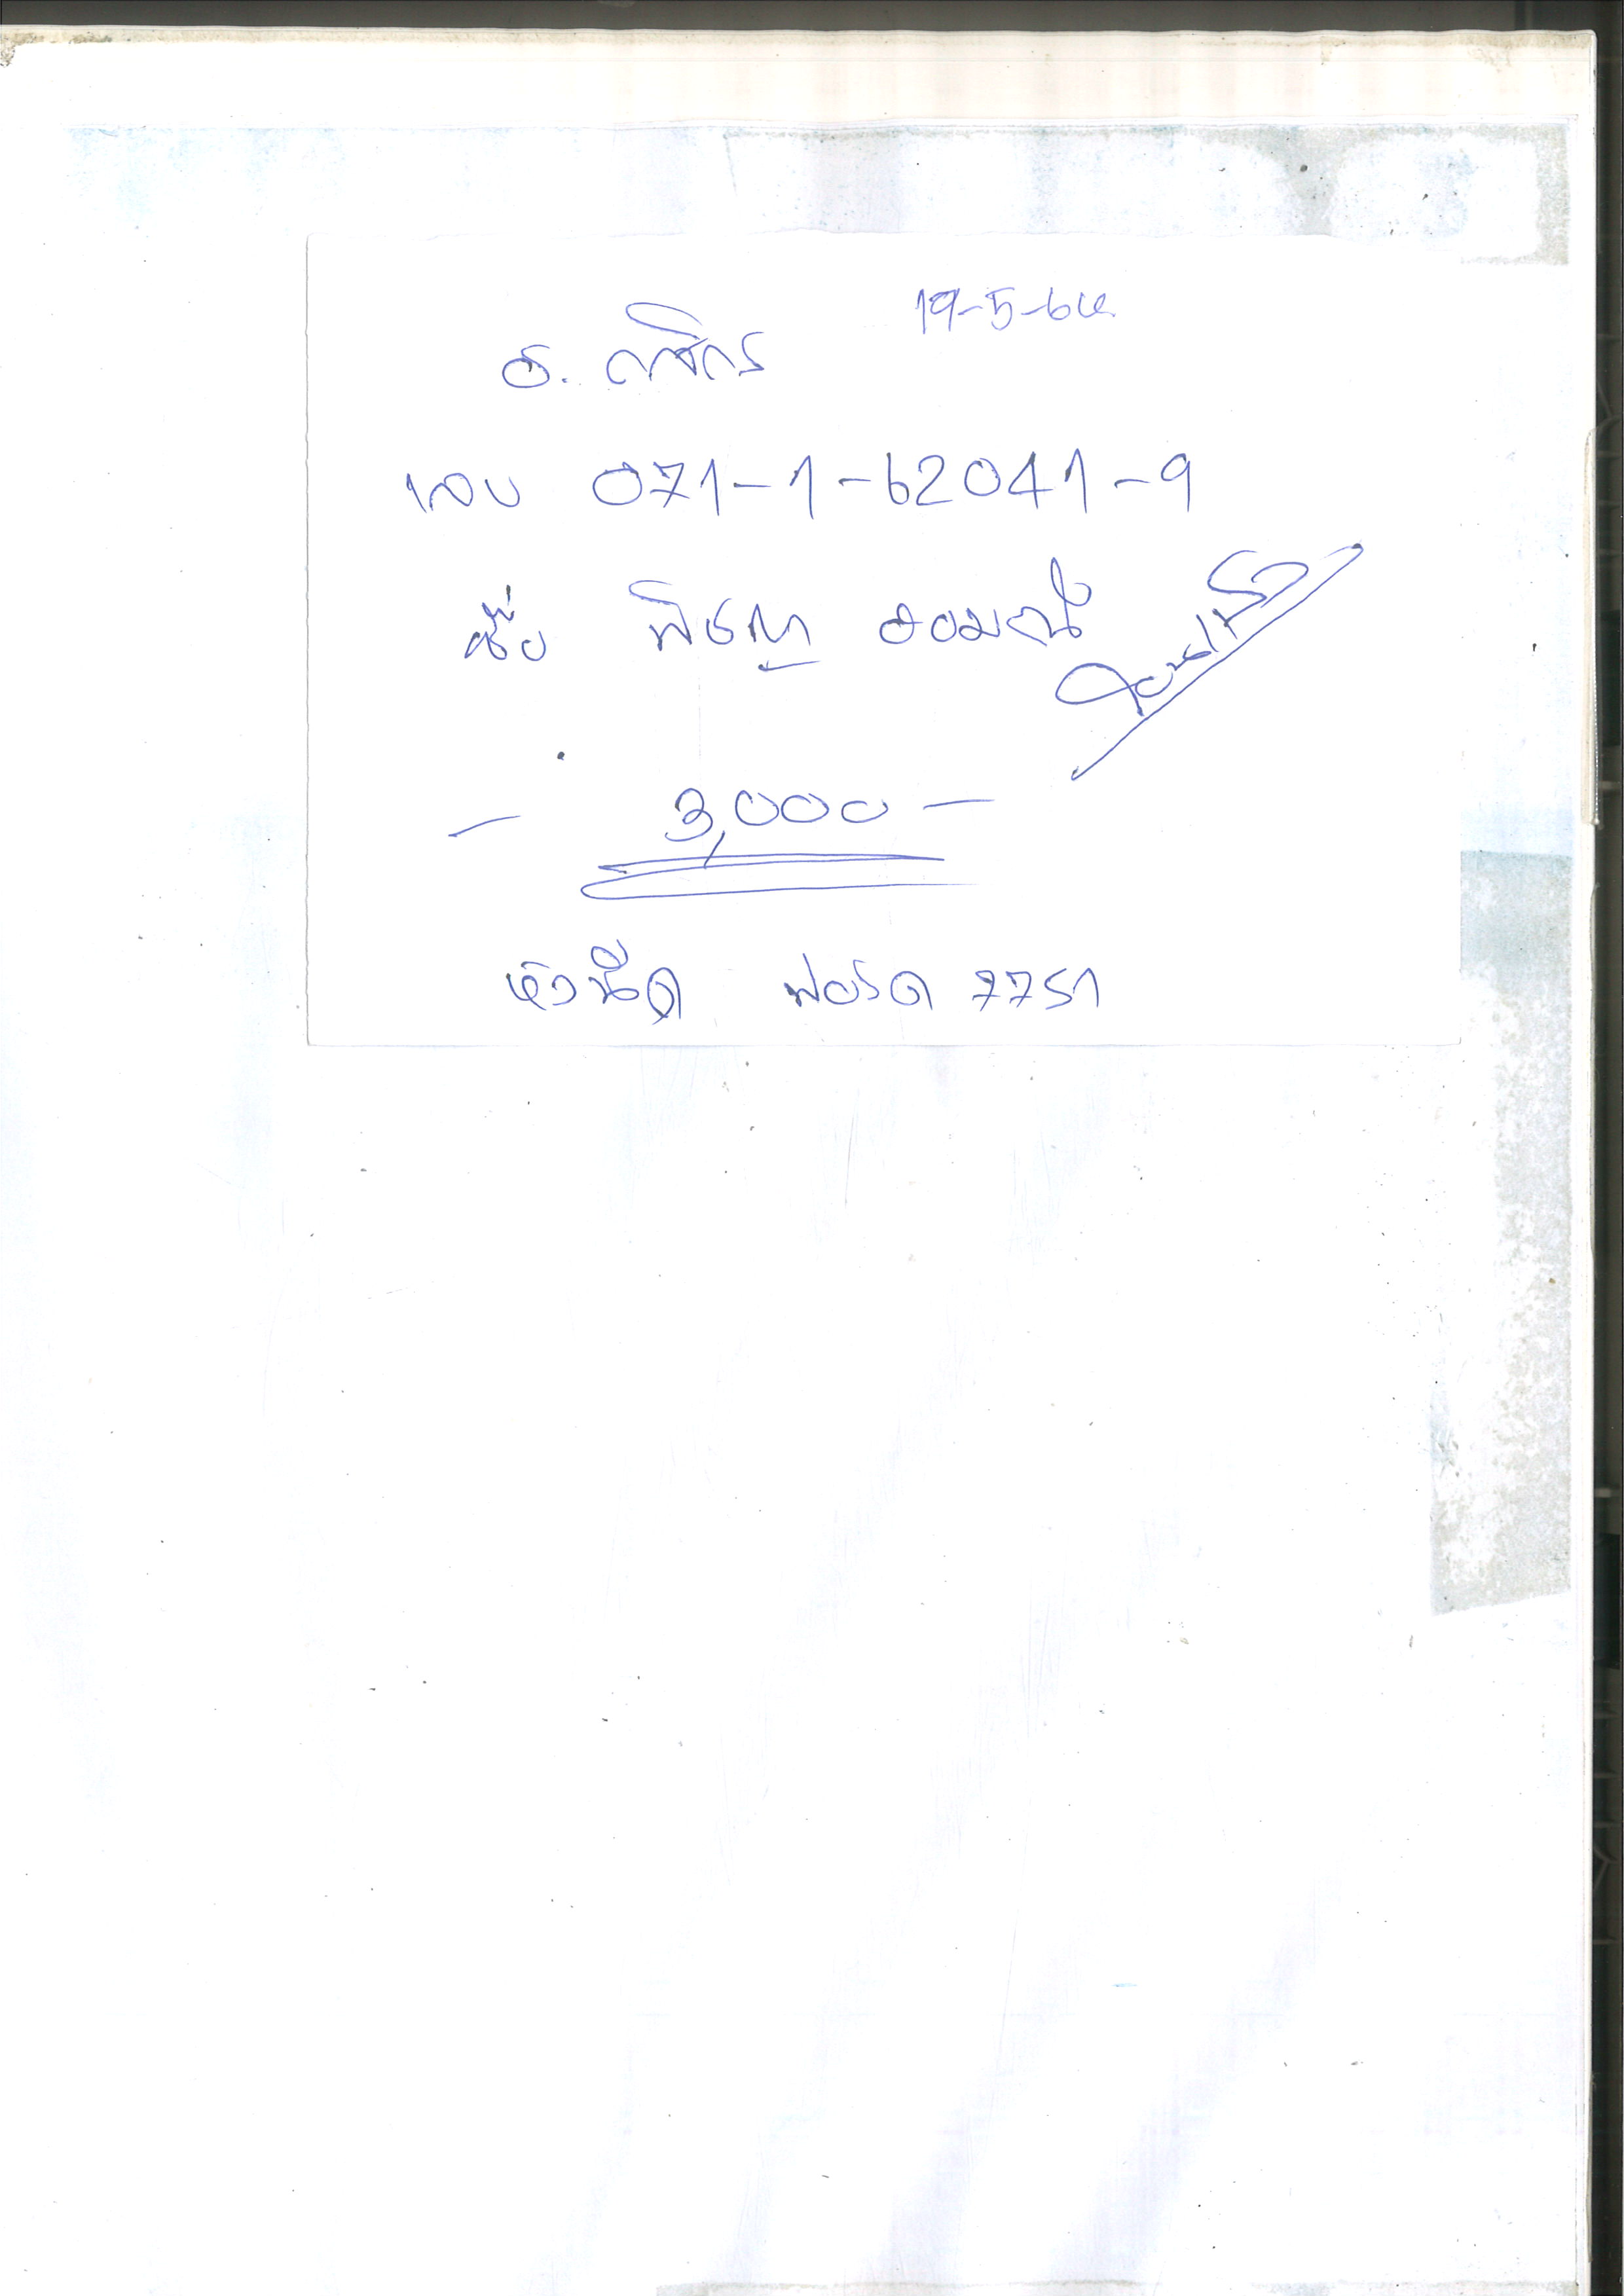 19-5-64
ธ. กสิกร
เลข 071-1-62041-9
ชื่อ พิชญา
โอนแล้ว
- 3,000 -
หัวฉีด ฟอร์ด 7751